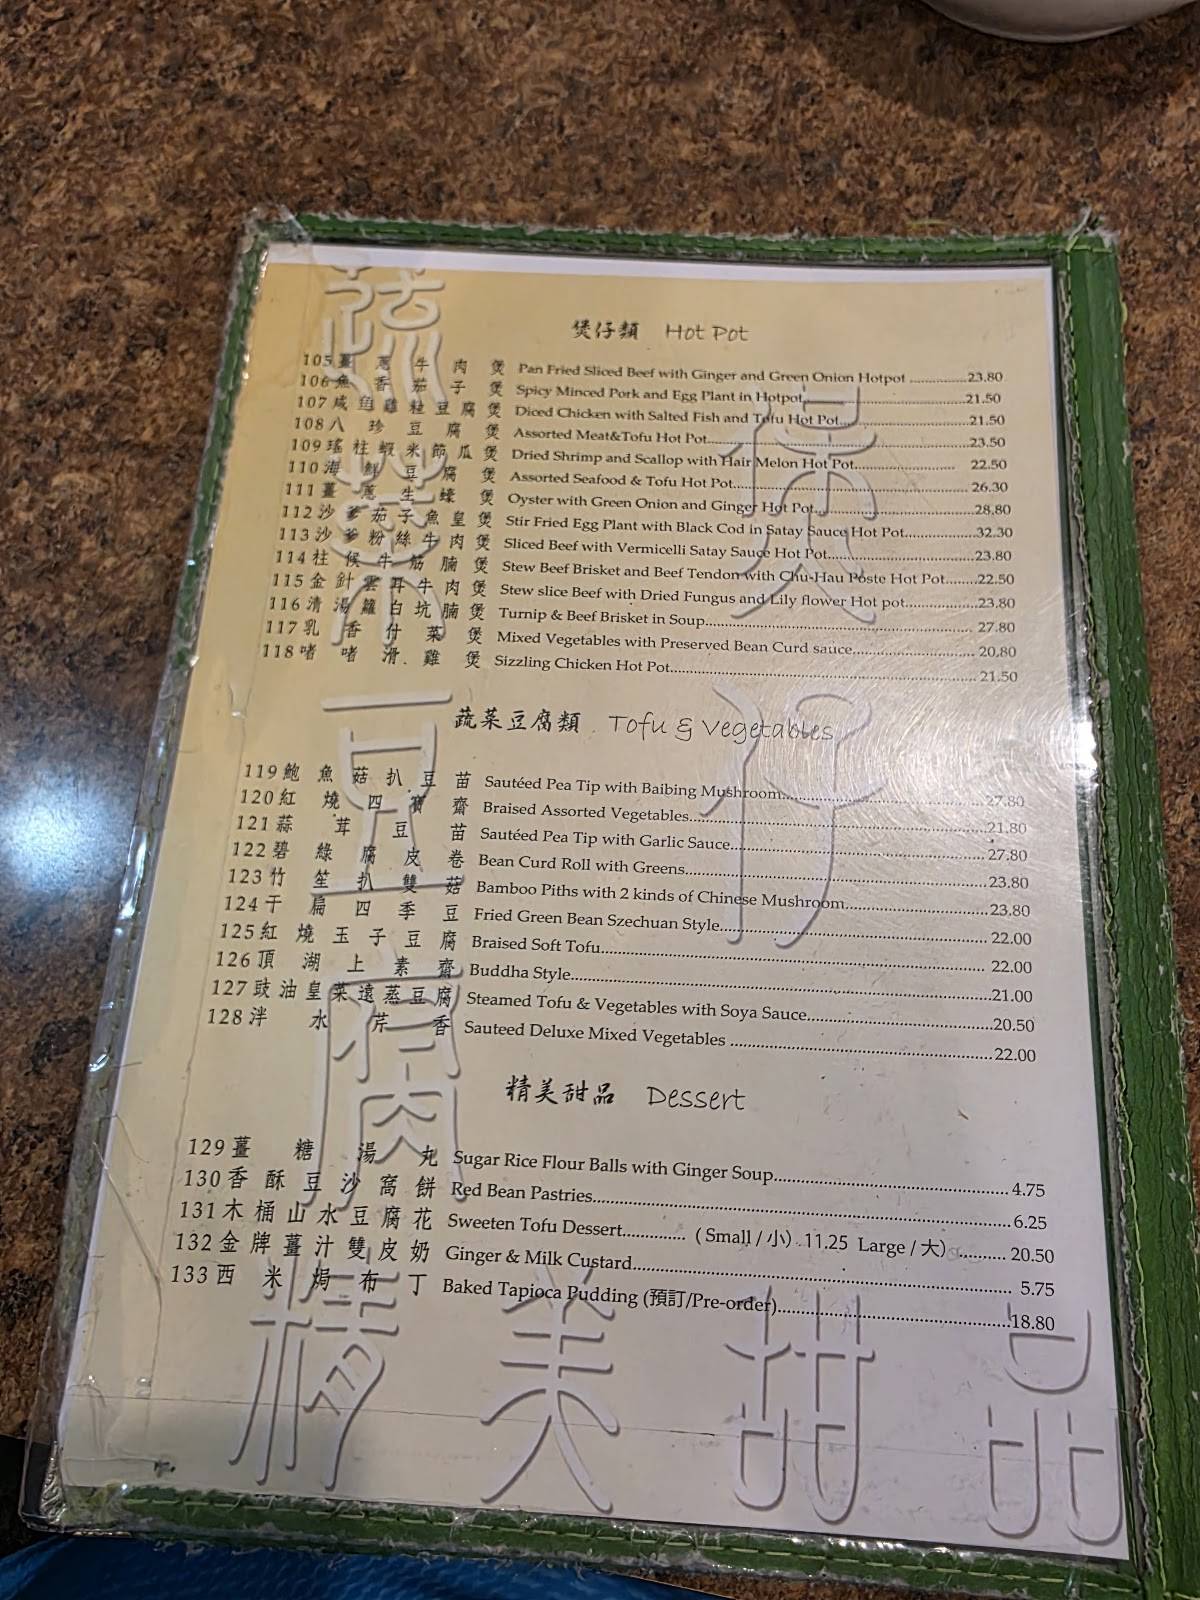 煲仔類 Hot Pot
105 薑蔥牛肉煲 Pan Fried Sliced Beef with Ginger and Green Onion Hotpot ................23.80
106 魚香茄子煲 Spicy Minced Pork and Egg Plant in Hotpot................21.50
107 咸魚雞粒豆腐煲 Diced Chicken with Salted Fish and Tofu Hot Pot................21.50
108 八珍豆腐煲 Assorted Meat&Tofu Hot Pot................23.50
109 瑤柱蝦米節瓜煲 Dried Shrimp and Scallop with Hair Melon Hot Pot................ 22.50
110 海鮮豆腐煲 Assorted Seafood & Tofu Hot Pot................ 26.30
111 薑蔥生蠔煲 Oyster with Green Onion and Ginger Hot Pot................28.80
112 沙爹茄子魚皇煲 Stir Fried Egg Plant with Black Cod in Satay Sauce Hot Pot................32.30
113 沙爹粉絲牛肉煲 Sliced Beef with Vermicelli Satay Sauce Hot Pot................23.80
114 柱候牛筋腩煲 Stew Beef Brisket and Beef Tendon with Chu-Hau Poste Hot Pot........22.50
115 金針雲耳牛肉煲 Stew slice Beef with Dried Fungus and Lily flower Hot pot................23.80
116 清湯蘿白坑腩煲 Turnip & Beef Brisket in Soup................ 27.80
117 乳香什菜煲 Mixed Vegetables with Preserved Bean Curd sauce................ 20.80
118 啫啫滑雞煲 Sizzling Chicken Hot Pot................ 21.50
蔬菜豆腐類 Tofu & Vegetables
119 鮑魚菇扒豆苗 Sautéed Pea Tip with Baibing Mushroom................27.80
120 紅燒四寶齋 Braised Assorted Vegetables................21.80
121 蒜茸豆苗 Sautéed Pea Tip with Garlic Sauce................ 27.80
122 碧綠腐皮卷 Bean Curd Roll with Greens................23.80
123 竹笙扒雙菇 Bamboo Piths with 2 kinds of Chinese Mushroom................23.80
124 干扁四季豆 Fried Green Bean Szechuan Style................ 22.00
125 紅燒玉子豆腐 Braised Soft Tofu................ 22.00
126 頂湖上素齋 Buddha Style................21.00
127 豉油皇菜遠蒸豆腐 Steamed Tofu & Vegetables with Soya Sauce................20.50
128 泮水芹香 Sauteed Deluxe Mixed Vegetables ................22.00
精美甜品 Dessert
129 薑糖湯丸 Sugar Rice Flour Balls with Ginger Soup................ 4.75
130 香酥豆沙窩餅 Red Bean Pastries................6.25
131 木桶山水豆腐花 Sweeten Tofu Dessert.............. (Small / 小) 11.25 Large / 大) .......... 20.50
132 金牌薑汁雙皮奶 Ginger & Milk Custard................ 5.75
133 西米焗布丁 Baked Tapioca Pudding (預訂/Pre-order)................18.80
蔬菜豆腐
煲仔
精美甜品